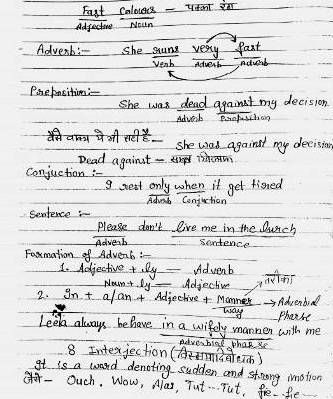 Fast Colours — पक्का रंग
Adjective Noun
Adverb:— She runs very fast
Verb Adverb Adverb
Preposition:—
She was dead against my decision
Adverb Preposition
वैसे वाक्य ये भी सही है— She was against my decision
Dead against —
Conjuction :—
I rest only when it get tired
Adverb Conjuction
Sentence :—
Please don't live me in the lurch
Adverb Sentence
Formation of Adverb:—
1. Adjective + ly — Adverb
Noun + ly — Adjective
तरीका
2. In + a/an + Adjective + Manner → Adverbial
way Pharse
Leela always behave in a wifely manner with me
Adverbial pharse
8 Interjection (विस्मयादिबोधक)
It is a word denoting sudden and strong imotion
जैसे — Ouch. Wow, Alas, Tut--Tut, fie--fie--